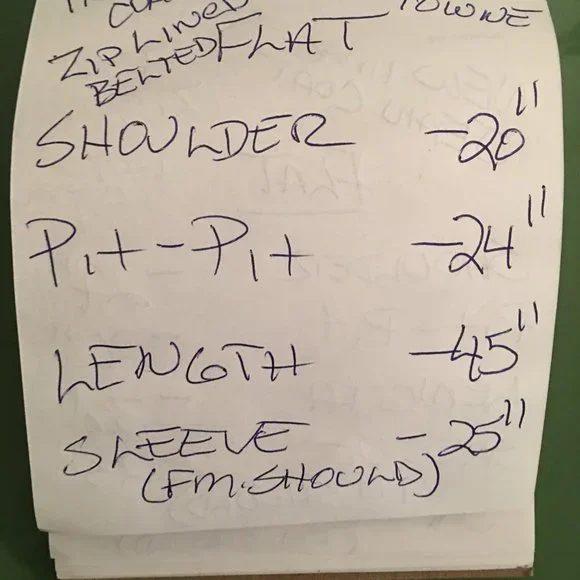 ZIP LINED
BELTED FLAT
SHOULDER -20"
Pit-Pit -24"
LENGTH -45"
SLEEVE - 25"
(FM. SHOULD)